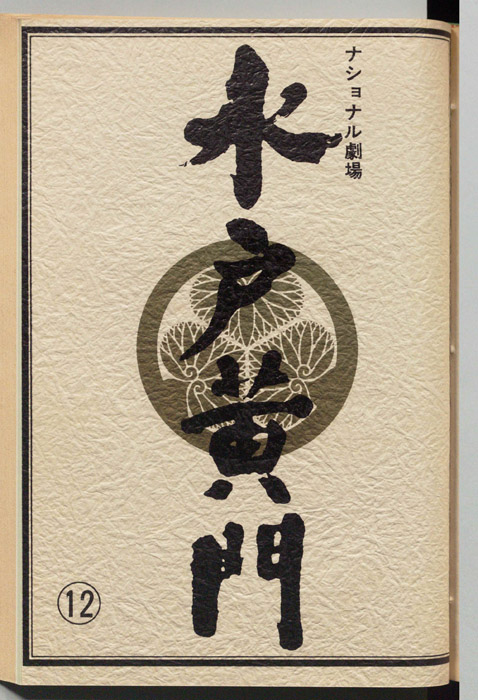 ナショナル劇場
水戸黄門
12